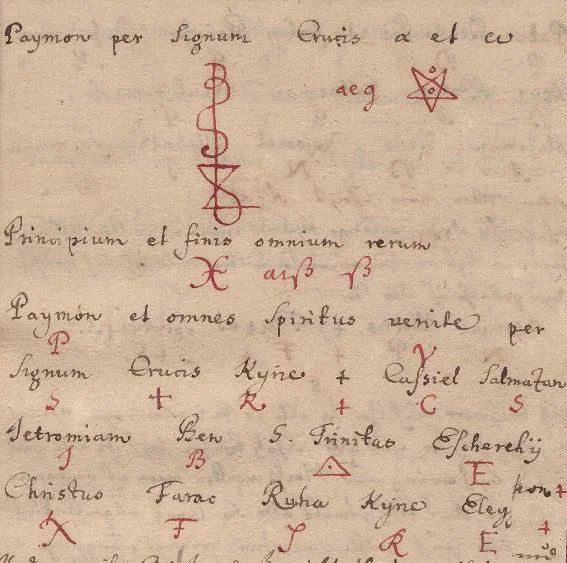 Paymon per Signum Crucis α et ω
aeg
Principium et finis omnium rerum
X
Paymon et omnes Spiritus venite per
P
Signum Crucis Kyrie + Cassiel Salmatan
S + R + C S
Tetromiam Ben S. Trinitas Escherehij
J B E
Christus Farac Ruha Kyrie Eley
X F R E +